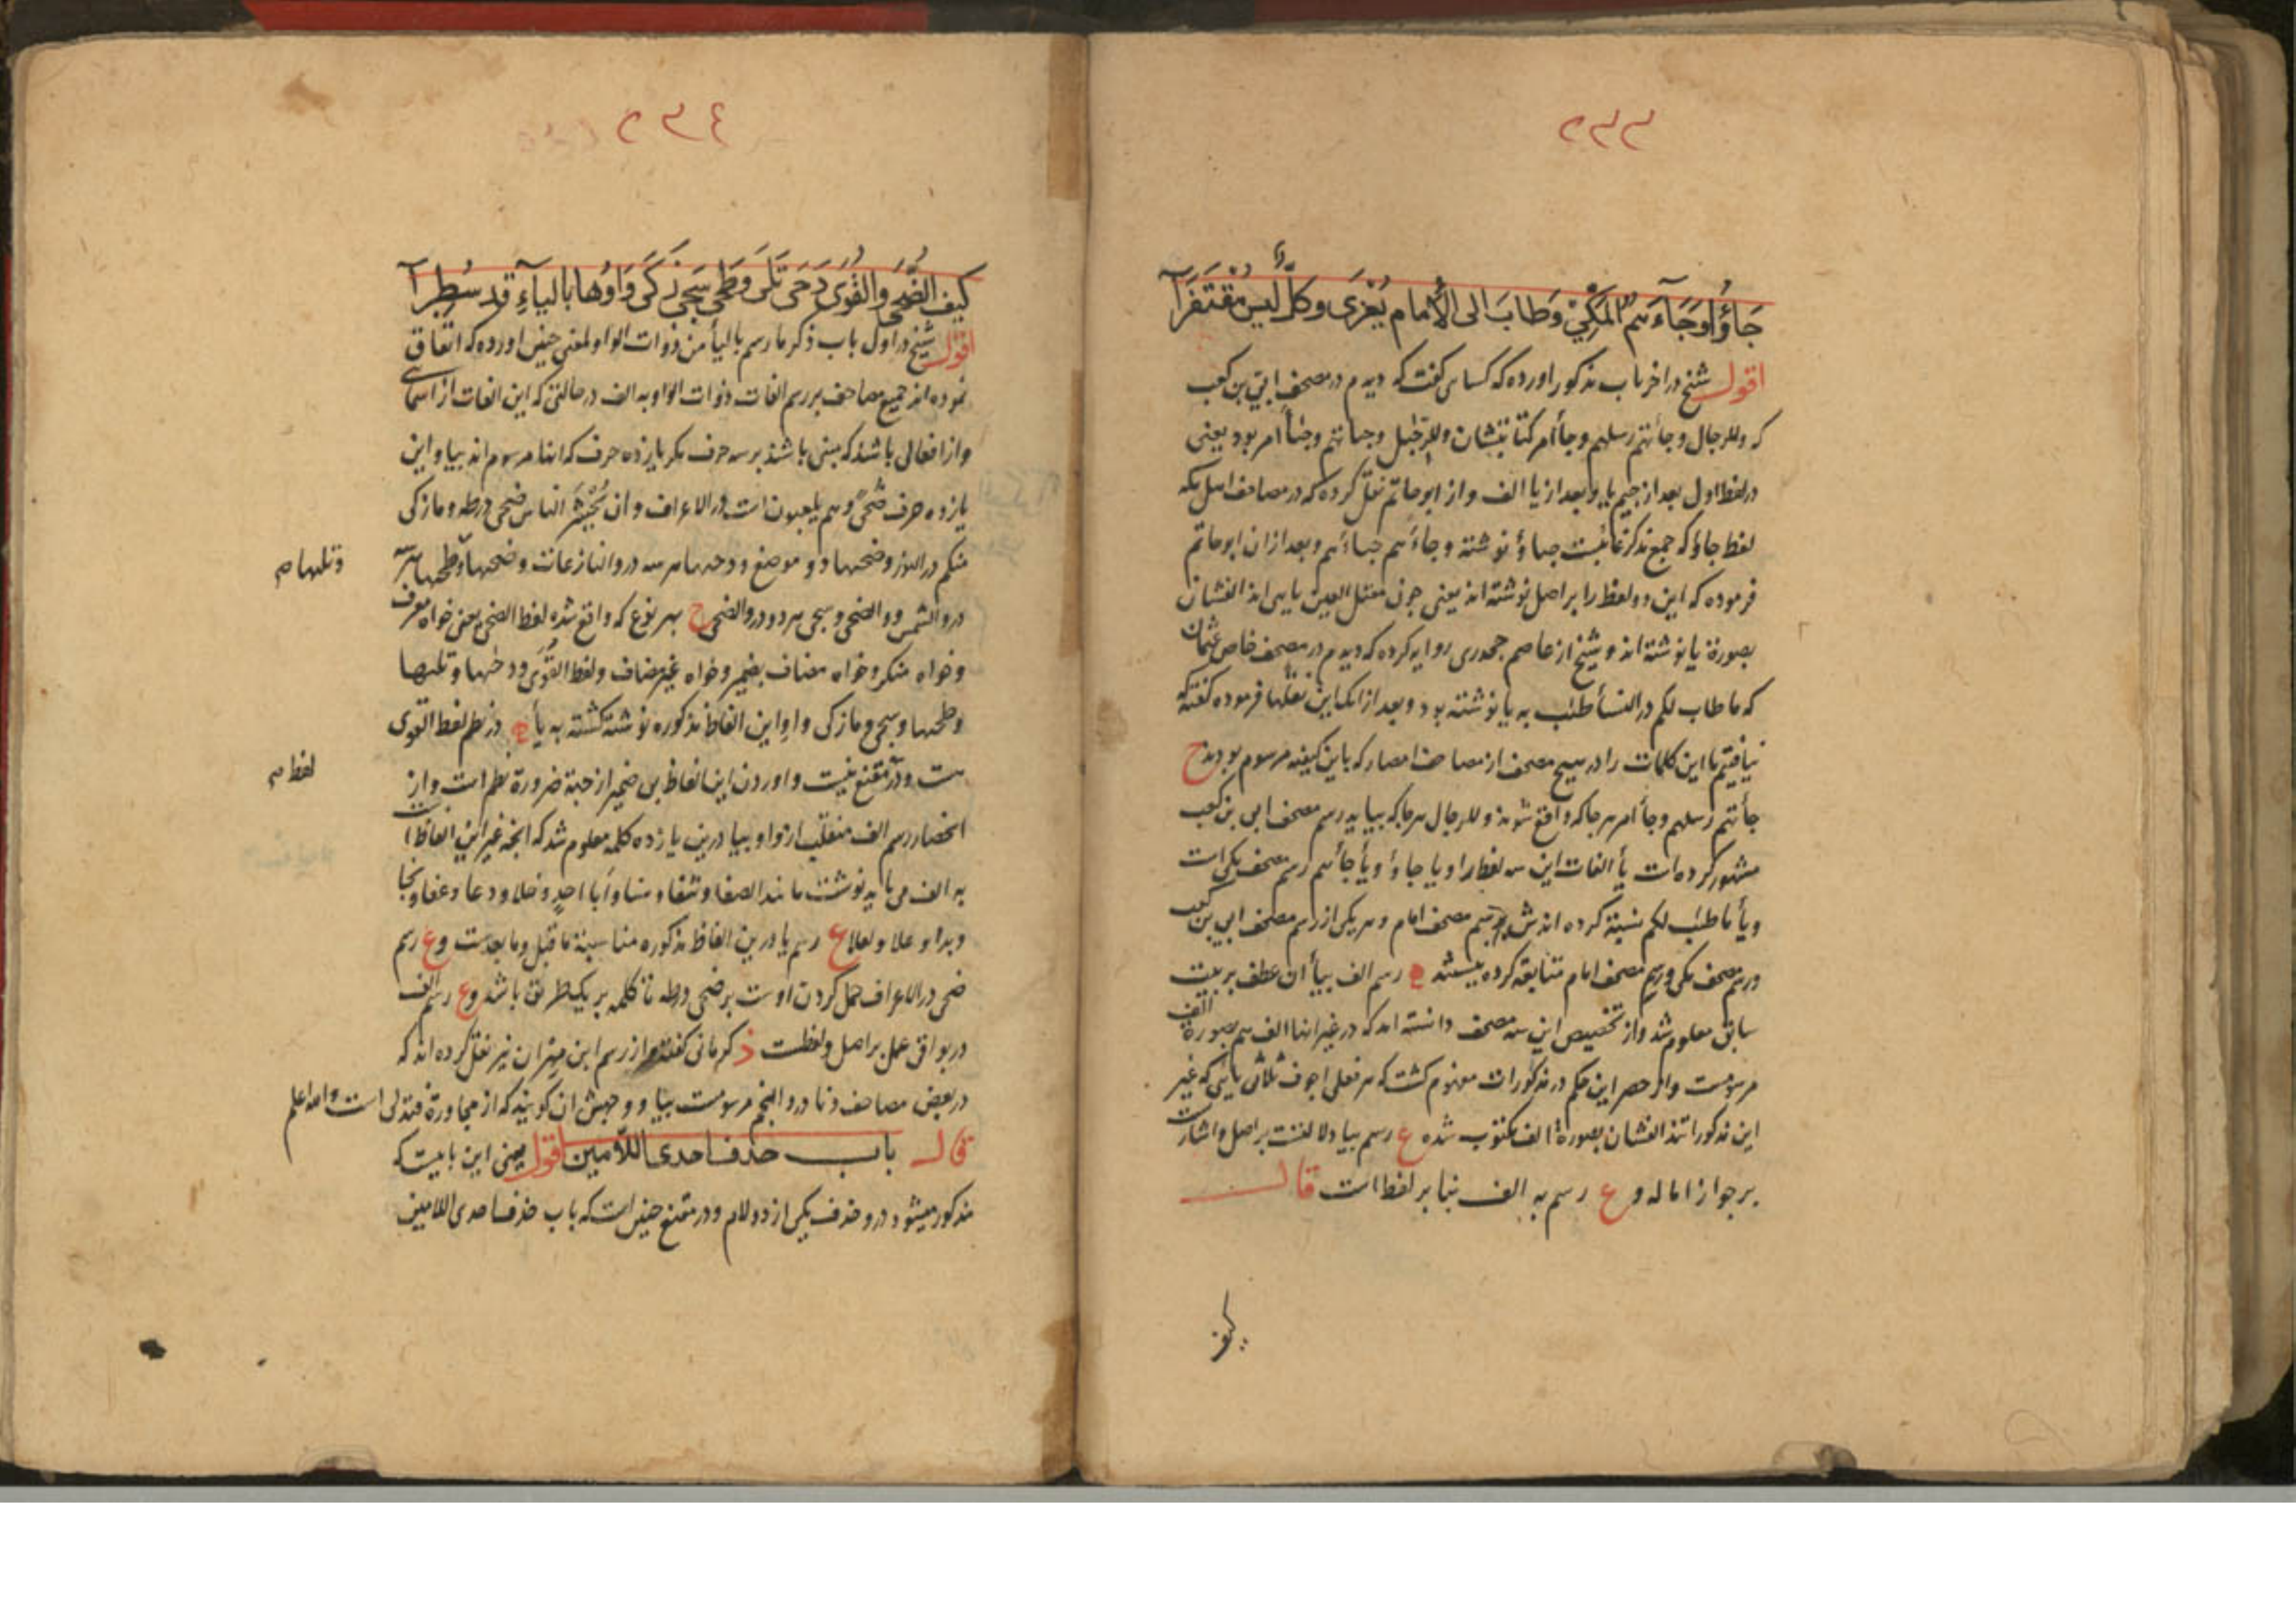 ٢٣٣
جَاؤُا وَجَآءَهُمُ المَكِّيْ وَطَابَ الى الأِمام يُعْزَى وكلٌّ ليس مُقْتَفَرَآ
اقول شیخ در اخر باب مذکور اورده که کسای کفت که دیدم در مصحف ابی بن کعب
که وللرجال وجائتهم رسلهم وجأ أمر کتابتشان وللرجیل وجیاتهم وجیأ امر بود یعنی
در لفظ اول بعد از جیم یا و بعد از یا الف و از ابوحاتم نقل کرده که در مصاحف اهل مکه
لفظ جاؤ که جمع مذکر غایبست جیاؤ نوشته و جاءهم جیاءهم و بعد ازان ابوحاتم
فرموده که این دو لفظ را بر اصل نوشته اند یعنی چون معتل العین یایی اند الفشان
بصورة یا نوشته اند و شیخ از عاصم جحدری روایه کرده که دیدم در مصحف خاص عثمان
که ما طاب لکم در النسأ طیب به یا نوشته بود و بعد از انکه این نقلها فرموده کفته که
نیافتیم ما این کلمات را در هیچ مصحف از مصاحف امصار که باین کیفیه مرسوم بودند ح
جأتهم رسلهم وجأ امر هر جا که واقع شوند وللرجال هر جا که بیاید رسم مصحف ابی بن کعب
مشهور کرده است یأ الفات این سه لفظ را و یا جاؤا و یأ جأهم رسم مصحف مکی است
و یأ ما طیب لکم نسبة کرده اند ش برسم مصحف امام و هر یکی از رسم مصحف ابی بن کعب
و رسم مصحف مکی و رسم مصحف امام متابعة کرده نیستند رسم الف بیأ ان عطف بر بیت
سابق معلوم شد و از تخصیص این سه مصحف دانسته اند که در غیر اینها الف هم بصورة الف
مرسومست و از حصر این حکم در مذکورات مفهوم کشت که هر فعلی اجوف ثلاثی یایی که غیر
این مذکوراتند الفشان بصورة الف مکتوب شده ع رسم بیا دلالتست بر اصل و اشارت
بر جواز اماله و ع رسم به الف بنا بر لفظ است قال
کیف
٢٣٤
كيف الضُّحَى والقُوَى دَحَى تَلَى وَطَحَى سَجَى زَكَى وَاوُها بالياءِ قد سُطِرآ
اقول شیخ در اول باب ذکر ما رسم بالیأ من ذوات الواو لمعنی چنین اورده که اتفاق
نموده اند جمیع مصاحف بر رسم الفات ذوات الواو به الف در حالتی که این الفات از اسمای
و از افعالی باشند که مبنی باشند بر سه حرف مکر یازده حرف که اینها مرسوم اند بیا و این
یازده حرف ضُحًى وهم یلعبون است در الاعراف و ان یُحْشَرَ الناس ضحی در طه و ما زکی
منکم در النور و ضحیها دو موضع و دحیها هر سه در و النازعات و ضحیها و طحیها هر سه
وتلیها صح
در و الشمس و و الضحی و سجی هر دو در و الضحی ح بهر نوع که واقع شده لفظ الضحی یعنی خواه معرف
و خواه منکر و خواه مضاف بضمیر و خواه غیر مضاف و لفظ القُوَى و دحیها و تلیها
و طحیها و سجی و ما زکی واو این الفاظ مذکوره نوشته کشته به یأ در نظم لفظ القوی
هست و در مقنع نیست و اوردن این الفاظ بی ضمیر از جهة ضرورة نظم است و از
لفظ صح
انحصار رسم الف منقلب از واو بیا درین یازده کلمه معلوم شد که انچه غیر این الفاظ است
به الف می باید نوشت مانند الصفا و شفا و سنا و أبا احدٍ و خلا و دعا و عفا و نجا
و بدا و علا و لعلا ع رسم یا درین الفاظ مذکوره مناسبة ما قبل و ما بعدست و ع رسم
ضحی در الاعراف حمل کردن اوست بر ضحی در طه تا کلمه بر یکطریق باشد و ع رسم الف
در بواقی عمل بر اصل و لفظست ذ کرمانی کفته و از رسم ابن مهران نیز نقل کرده اند که
در بعض مصاحف دنا در و النجم مرسومست بیا و وجهش ان کویند که از مجاورة فتدلی است و الله اعلم
قال باب حذف احدى اللّامين اقول یعنی این بابیست که
مذکور میشود درو حذف یکی از دو لام و در مقنع چنین است که باب حذف احدی اللامین